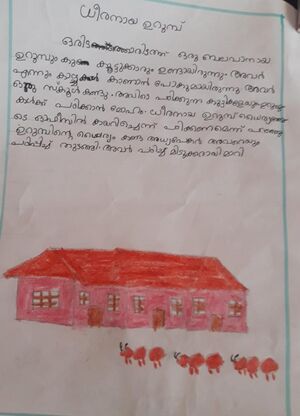 ധീരനായ ഉറുമ്പ്
ഒരിടത്തൊരിടത്ത് ഒരു ബലവാനായ
ഉറുമ്പും കുറേ കൂട്ടുക്കാരും ഉണ്ടായിരുന്നു. അവർ
എന്നും കാഴ്ചകൾ കാണാൻ പോകുമായിരുന്നു അവർ
ഒരു സ്കൂൾ കണ്ടു. അവിടെ പഠിക്കുന്ന കുട്ടികളെയും
കൾക്ക് പഠിക്കാൻ മോഹം. ധീരനായ ഉറുമ്പ് ധൈര്യത്തോ
ടെ ഓഫീസിൽ കയറിച്ചെന്ന് പഠിക്കണമെന്ന് പറഞ്ഞു
ഉറുമ്പിന്റെ ധൈര്യം കണ്ട അധ്യാപകർ അവരെയും
പഠിപ്പിച്ച് തുടങ്ങി. അവർ പഠിച്ച് മിടുക്കരായി മാറി